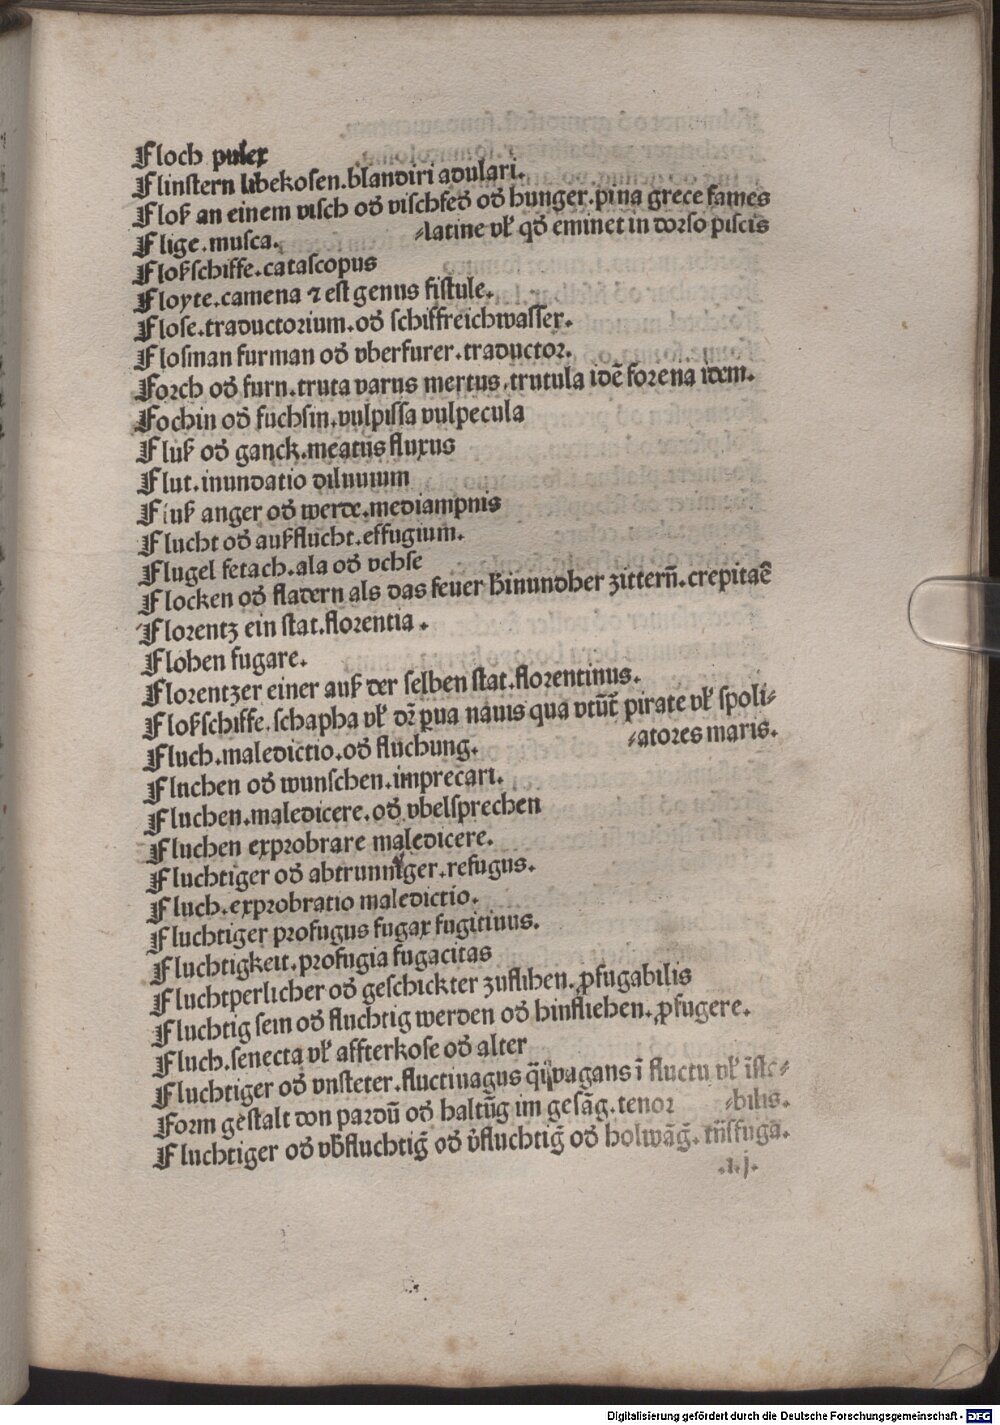 Floch pulex
Flinstern libekosen.blandiri adulari.
Floß an einem visch oď vischfeď oď hunger.pina grece fames
Flige.musca. ⸗latine vł qď eminet in dorso piscis
Floßschiffe.catascopus
Floyte.camena ⁊ est genus fistule.
Flose.traductorium.oď schiffreichwasser.
Flosman furman oď vberfurer.traductor.
Forch oď furn.truta varus mertus.trutula idē forena idem.
Fochin oď fuchsin.vulpissa vulpecula
Fluß oď ganck.meatus fluxus
Flut.inundatio diluuium
Fluß anger oď werde.mediampnis
Flucht oď außflucht.effugium.
Flugel fetach.ala oď vchse
Flocken oď fladern als das feuer hinundher zittern̄.crepitaē
Florentz ein stat.florentia.
Flohen fugare.
Florentzer einer auß der selben stat.florentinus.
Floßschiffe.schapha vł dr̄ ꝑua nauis qua vtūt̄ pirate vł spoli⸗
Fluch.maledictio.oď fluchung. ⸗atores maris.
Fluchen oď wunschen.imprecari.
Fluchen.maledicere.oď vbelsprechen
Fluchen exprobrare maledicere.
Fluchtiger oď abtrunniger.refugus.
Fluch.exprobratio maledictio.
Fluchtiger profugus fugax fugitiuus.
Fluchtigkeit.profugia fugacitas
Fluchtperlicher oď geschickter zuflihen.ꝓfugabilis
Fluchtig sein oď fluchtig werden oď hinfliehen.ꝓfugere.
Fluch.senecta vł affterkose oď alter
Fluchtiger oď vnsteter.fluctiuagus q̄ vagans ī fluctu vł īsta⸗
Form gestalt don pardū oď haltūg im gesāg.tenor ⸗bilis.
Fluchtiger oď vb̄fluchtiḡ oď v̄fluchtiḡ oď holwāḡ. trāsfuga.
.i.j.
Digitalisierung gefördert durch die Deutsche Forschungsgemeinschaft - DFG